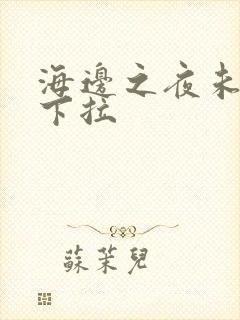 海邊之夜未
下拉
蘇茉兒